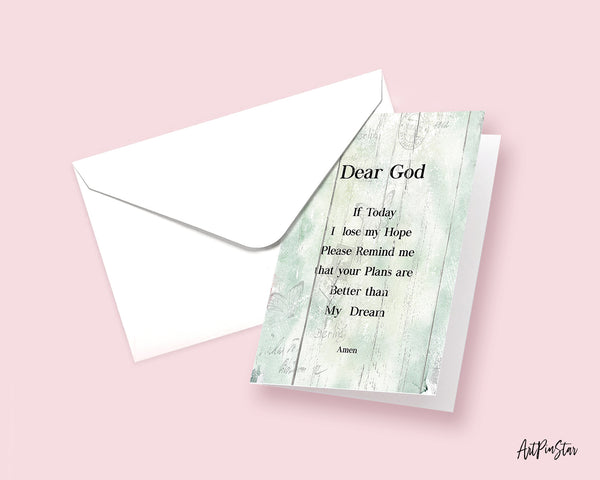 Dear God
If Today
I lose my Hope
Please Remind me
that your Plans are
Better than
My Dream
Amen
ArtPinStar